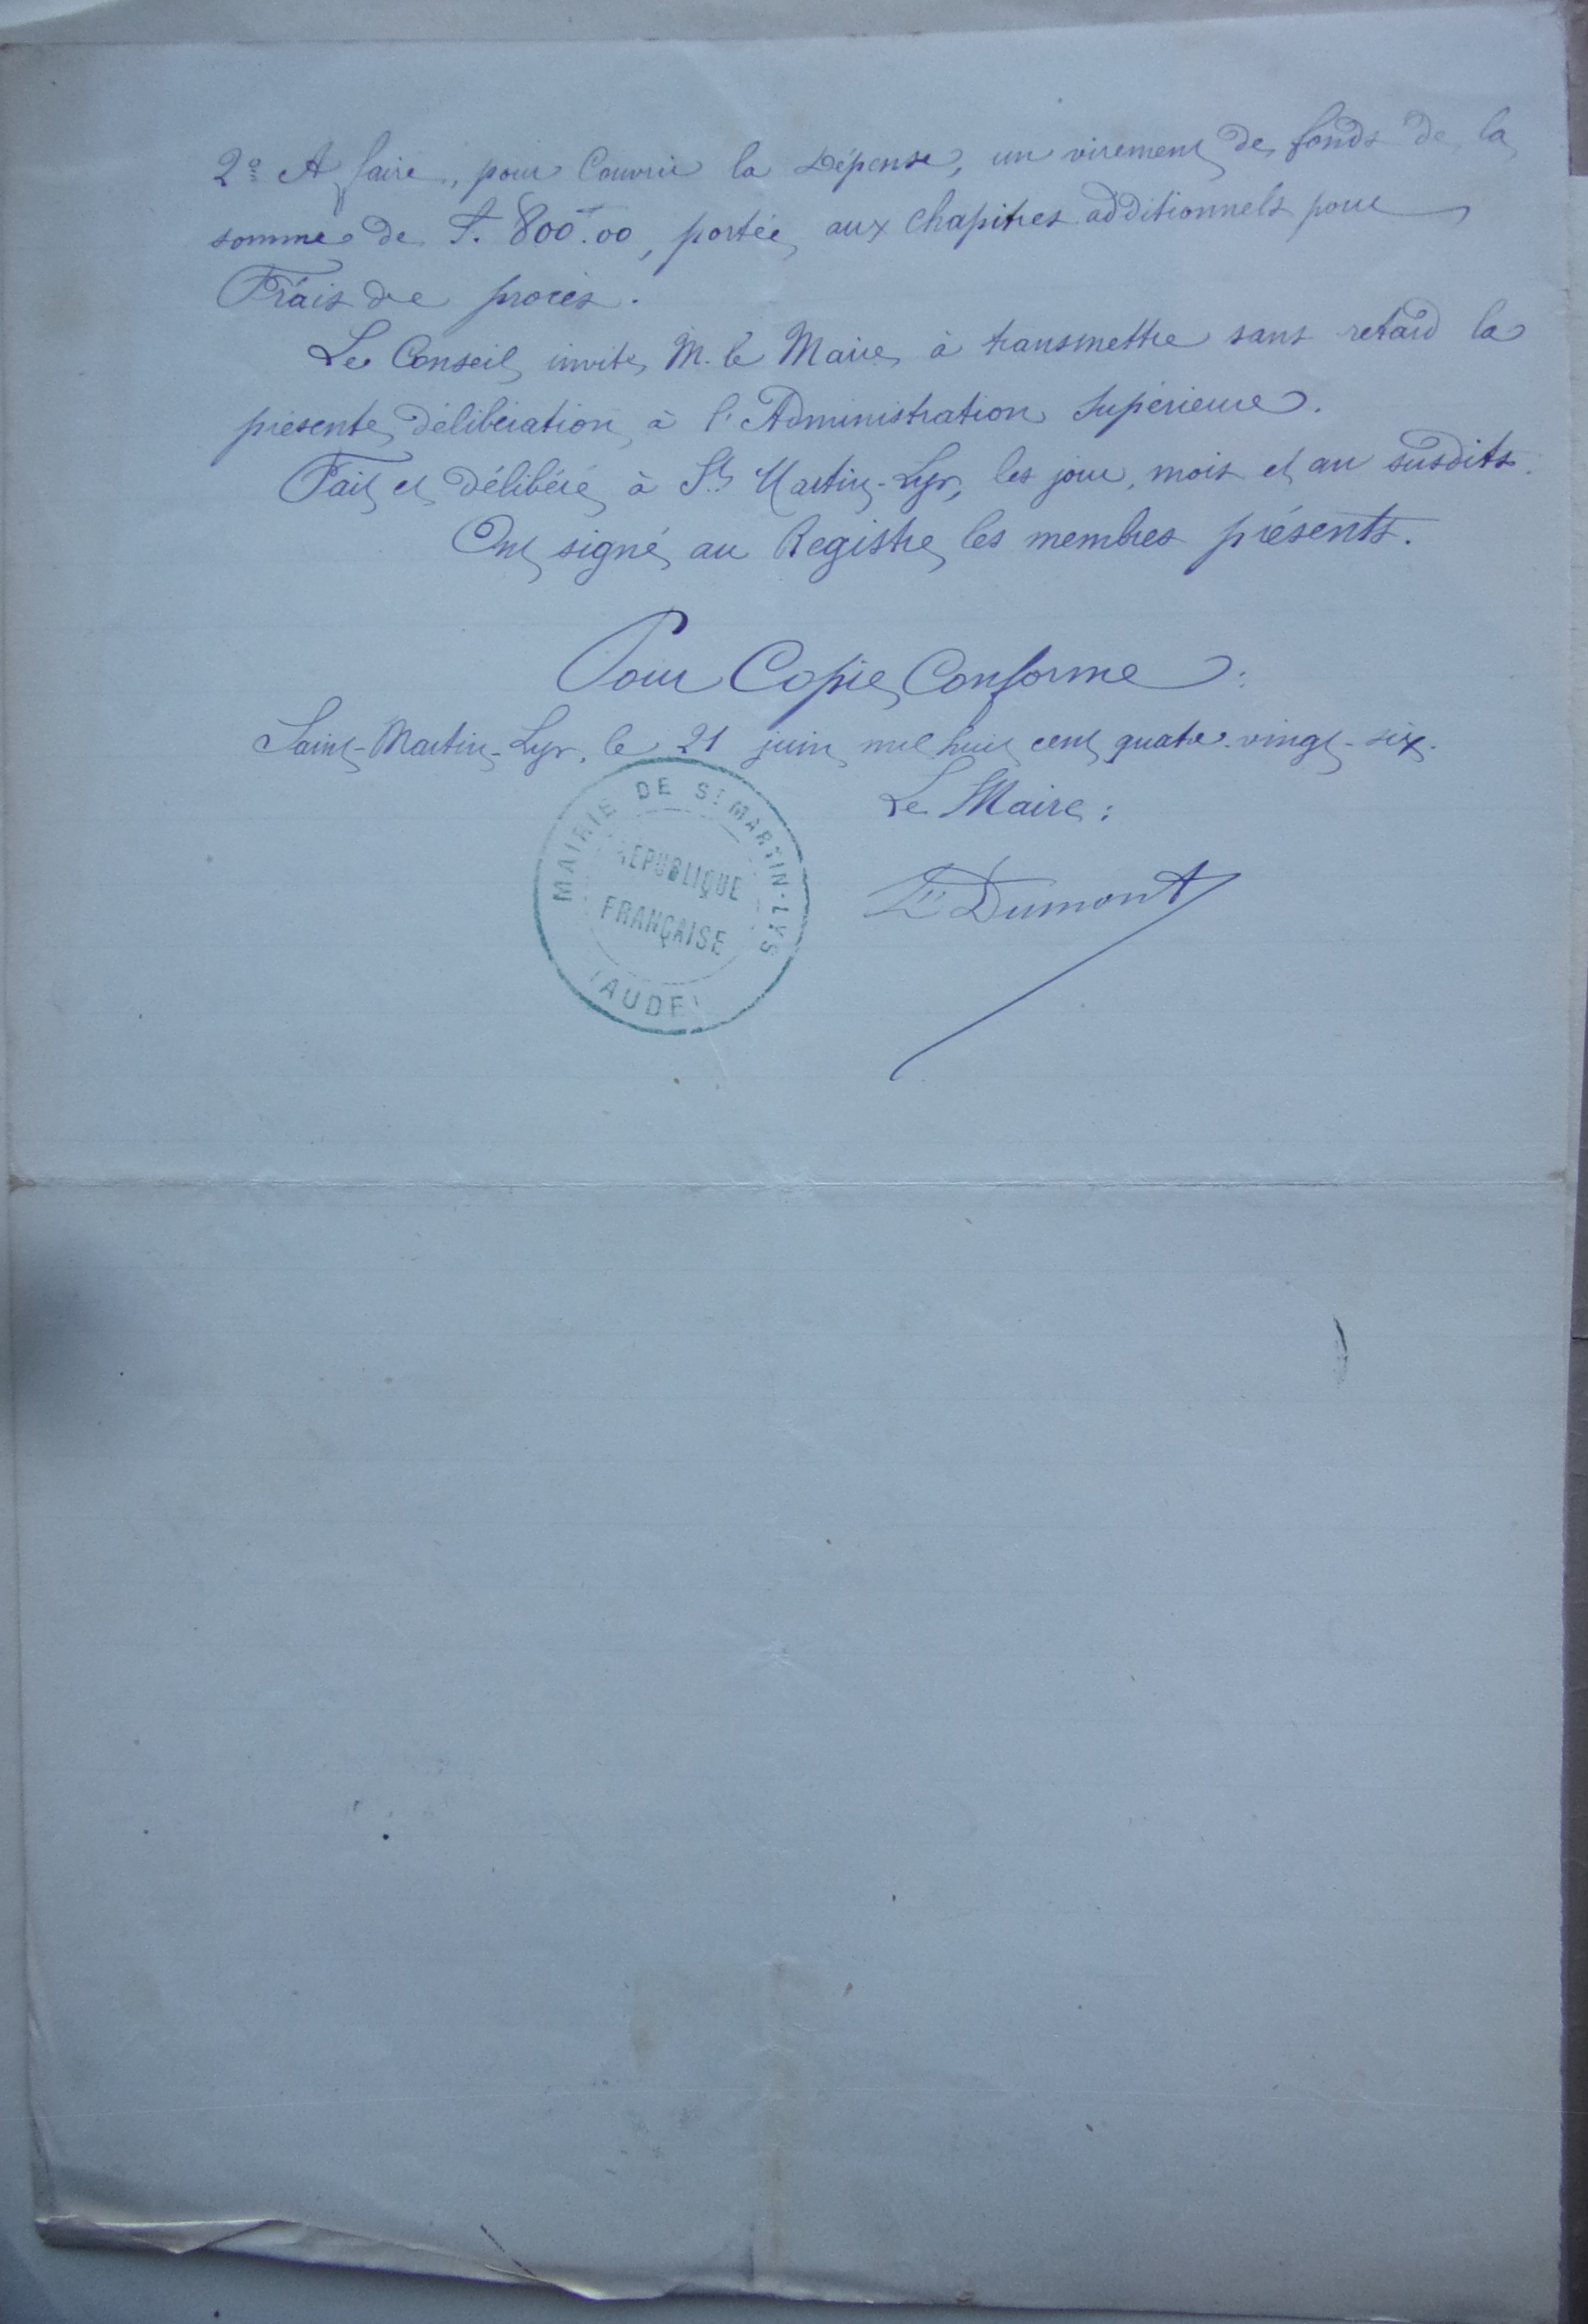 2° A faire, pour Couvrir la Dépense, un virement de fonds de la
somme de F. 800.00, portée aux Chapitres additionnels pour
Frais de procès.
Le Conseil invite M. le Maire à transmettre sans retard la
présente délibération à l'Administration Supérieure.
Fait et délibéré à St Martin-Lys, les jour, mois et an susdits.
Ont signé au Registre les membres présents.
Pour Copie Conforme :
Saint-Martin-Lys, le 21 juin mil huit cent quatre-vingt-six.
Le Maire :
Dumont
MAIRIE DE ST MARTIN-LYS
RÉPUBLIQUE
FRANÇAISE
(AUDE)